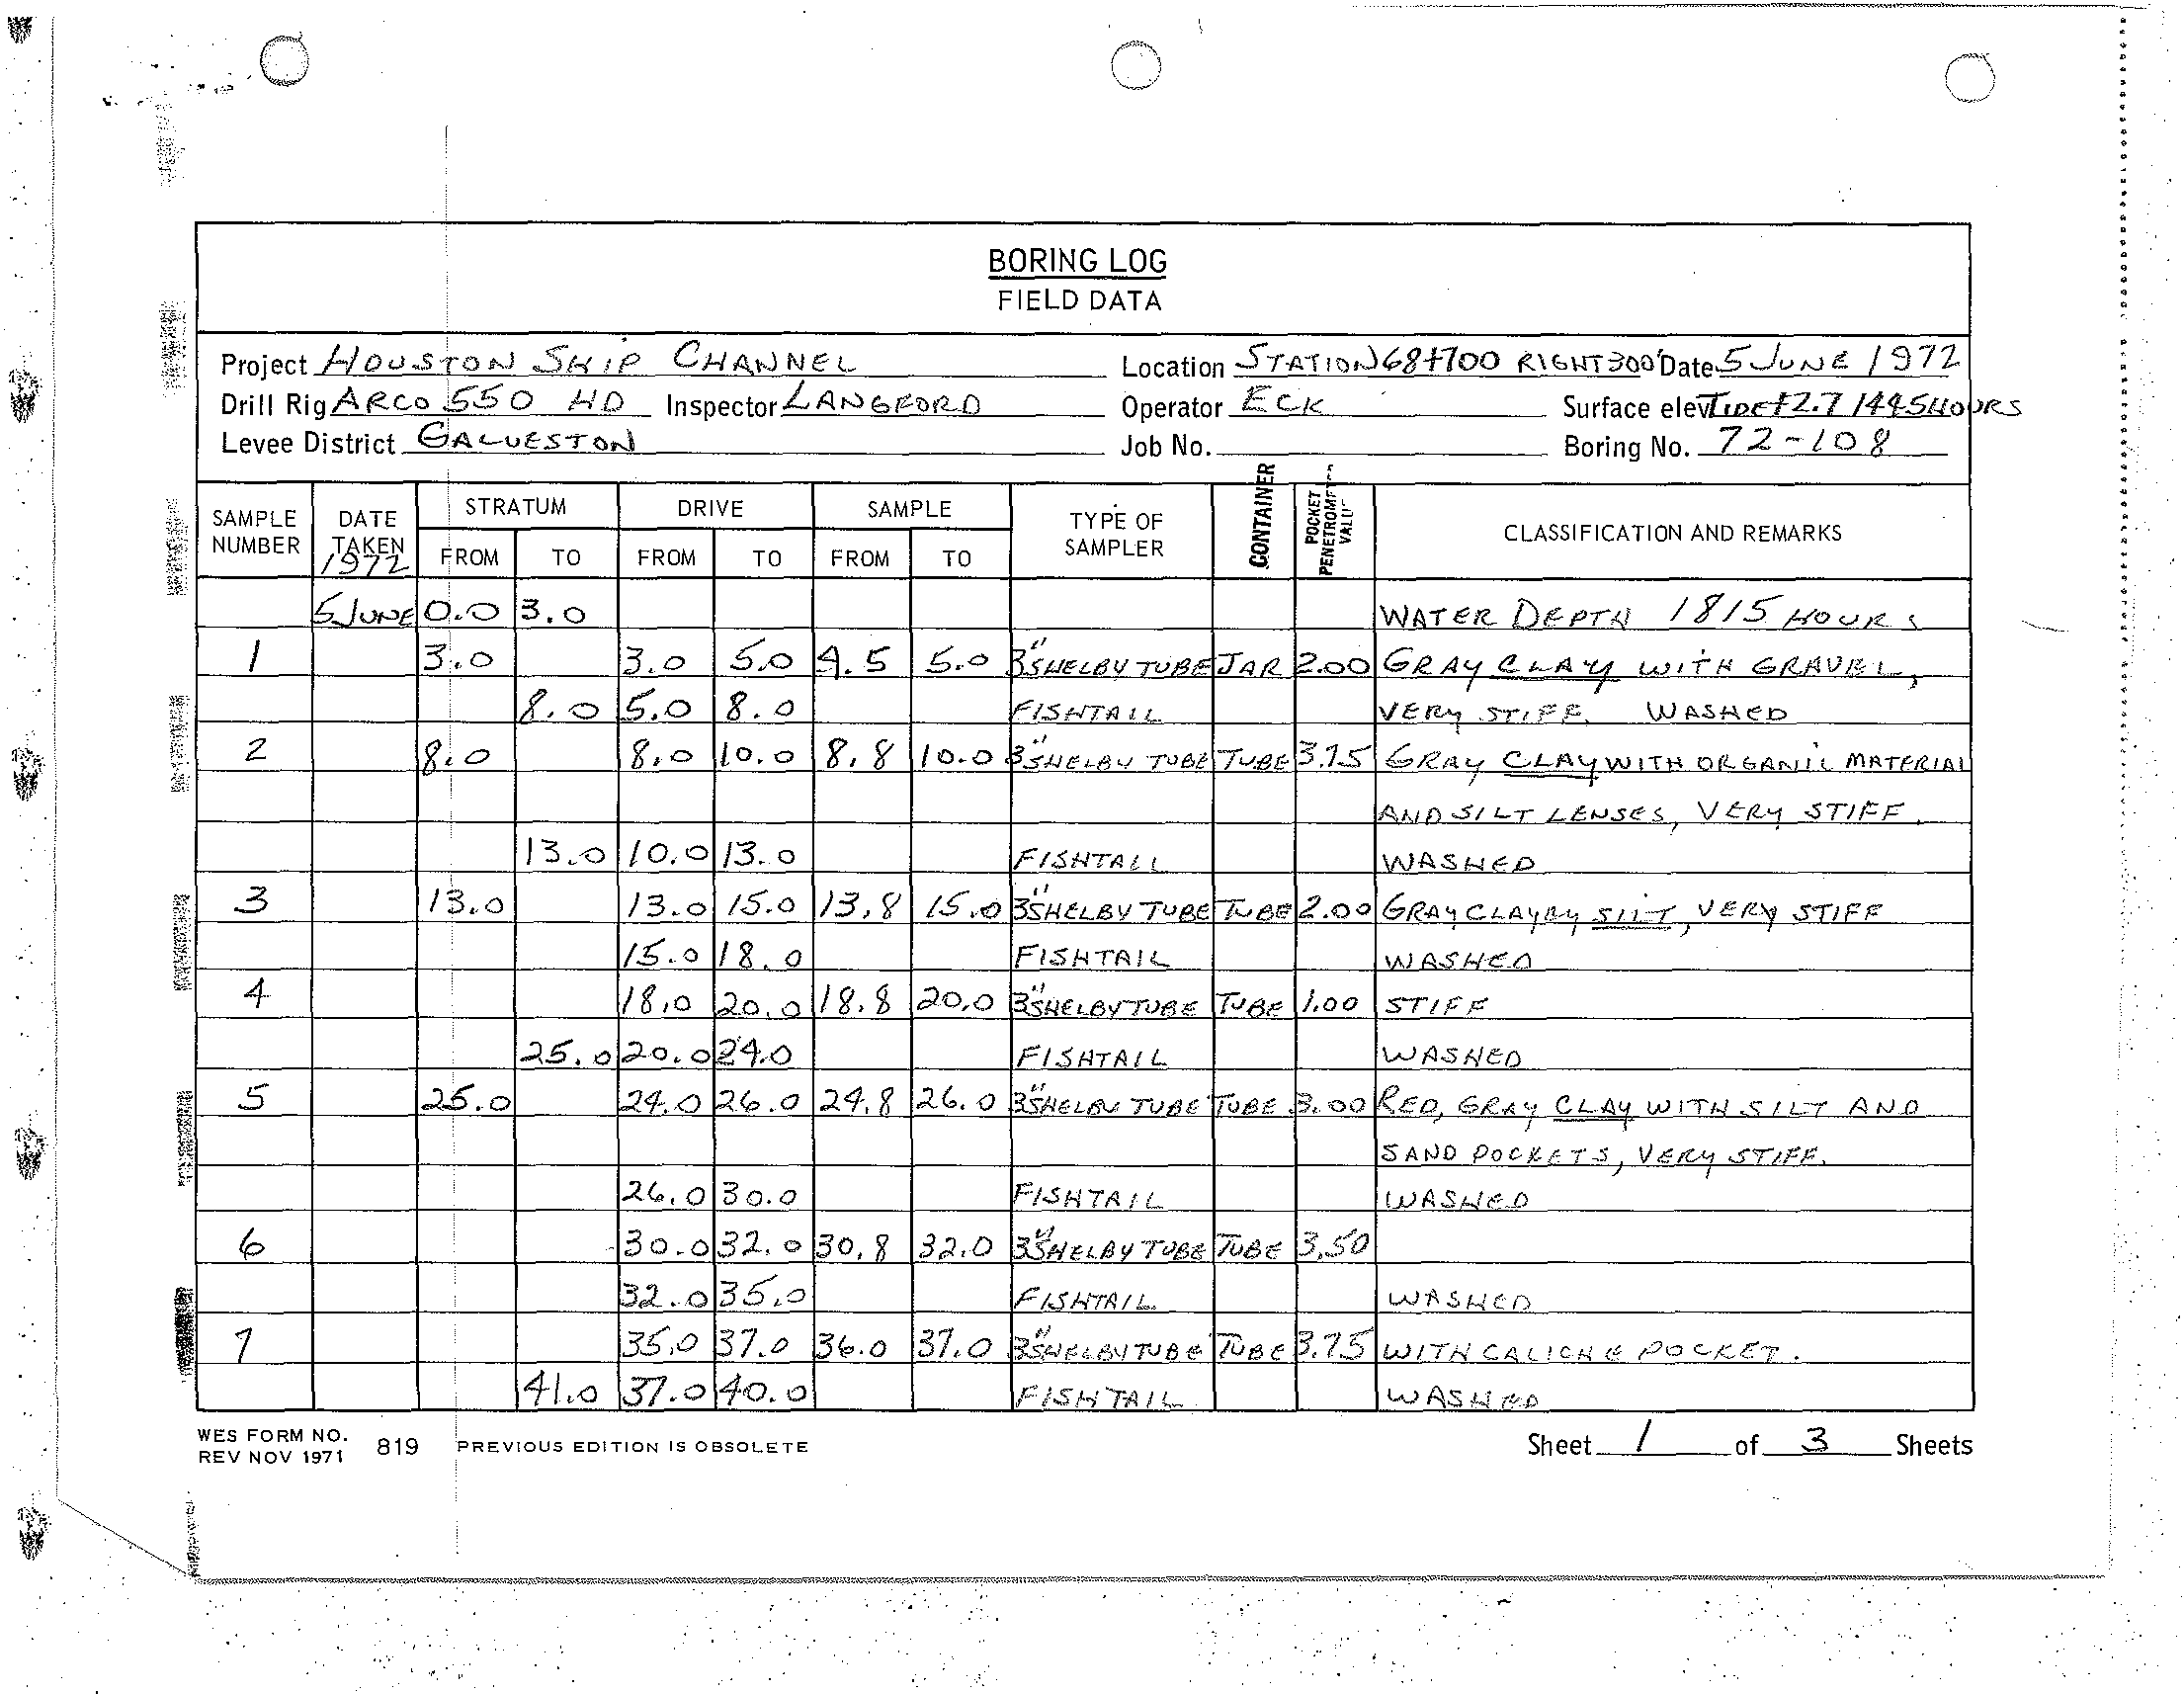 BORING LOG
FIELD DATA
Project HOUSTON SHIP CHANNEL Location STATION 68+700 RIGHT 300' Date 5 JUNE 1972
Drill Rig ARCO 550 HD Inspector LANGFORD Operator ECK Surface elev TIDE +2.7 1445 HOURS
Levee District GALVESTON Job No. Boring No. 72-108
SAMPLE NUMBER DATE TAKEN 1972 STRATUM FROM TO DRIVE FROM TO SAMPLE FROM TO TYPE OF SAMPLER CONTAINER POCKET PENETROMETER VALUE CLASSIFICATION AND REMARKS
5 JUNE 0.0 3.0 WATER DEPTH 1815 HOURS
1 3.0 3.0 5.0 4.5 5.0 3" SHELBY TUBE JAR 2.00 GRAY CLAY WITH GRAVEL,
8.0 5.0 8.0 FISHTAIL VERY STIFF. WASHED
2 8.0 8.0 10.0 8.8 10.0 3" SHELBY TUBE TUBE 3.75 GRAY CLAY WITH ORGANIC MATERIAL
AND SILT LENSES, VERY STIFF.
13.0 10.0 13.0 FISHTAIL WASHED
3 13.0 13.0 15.0 13.8 15.0 3" SHELBY TUBE TUBE 2.00 GRAY CLAYEY SILT, VERY STIFF
15.0 18.0 FISHTAIL WASHED
4 18.0 20.0 18.8 20.0 3" SHELBY TUBE TUBE 1.00 STIFF
25.0 20.0 24.0 FISHTAIL WASHED
5 25.0 24.0 26.0 24.8 26.0 3" SHELBY TUBE TUBE 3.00 RED, GRAY CLAY WITH SILT AND
SAND POCKETS, VERY STIFF.
26.0 30.0 FISHTAIL WASHED
6 30.0 32.0 30.8 32.0 3" SHELBY TUBE TUBE 3.50
32.0 35.0 FISHTAIL WASHED
7 35.0 37.0 36.0 37.0 3" SHELBY TUBE TUBE 3.75 WITH CALICHE POCKET.
41.0 37.0 40.0 FISHTAIL WASHED
WES FORM NO. 819 PREVIOUS EDITION IS OBSOLETE Sheet 1 of 3 Sheets
REV NOV 1971